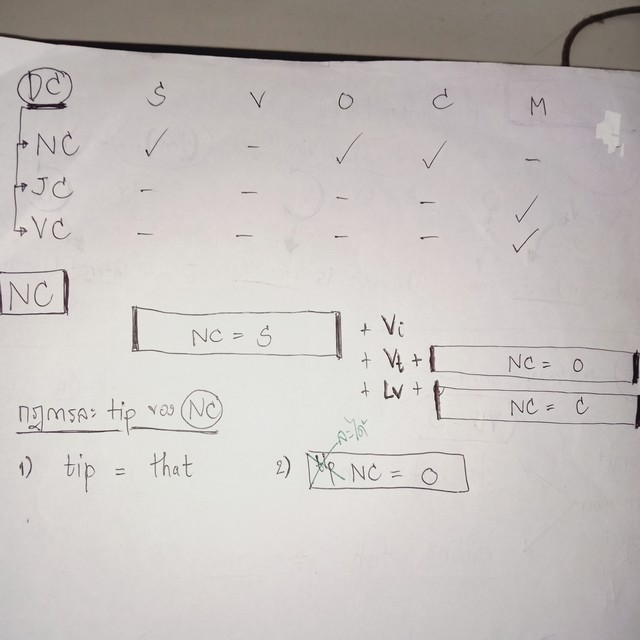 DC S V O C M
NC ✓ - ✓ ✓ -
JC - - - - ✓
VC - - - - ✓
NC
NC = S + Vi
+ Vt + NC = O
+ Lv + NC = C
กฎการละ tip ของ NC
ละได้
1) tip = that 2) tip NC = O